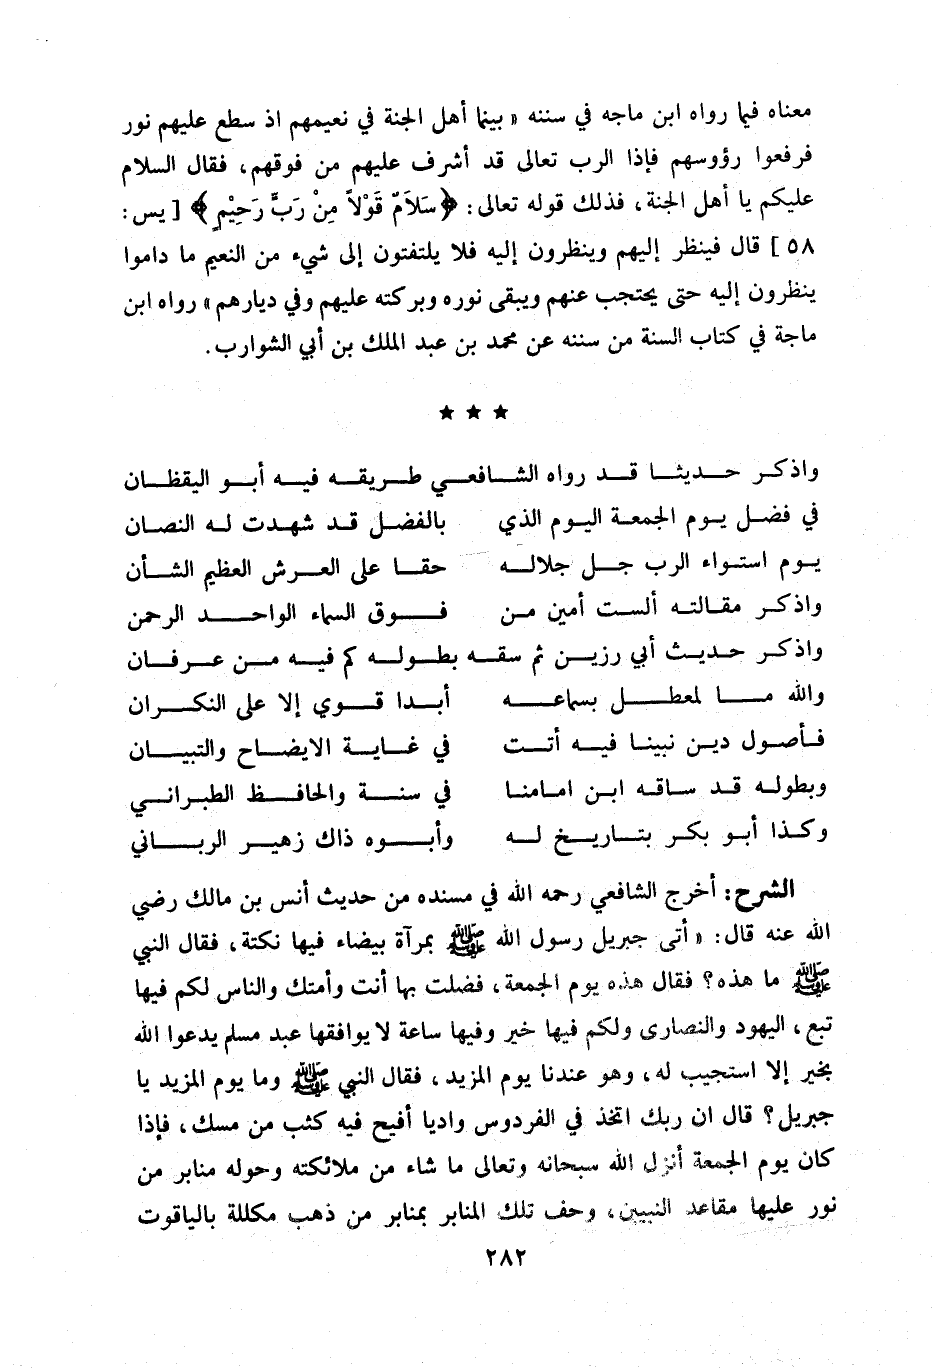 معناه فيما رواه ابن ماجه في سننه « بينما أهل الجنة في نعيمهم اذ سطع عليهم نور
فرفعوا رؤوسهم فإذا الرب تعالى قد أشرف عليهم من فوقهم، فقال السلام
عليكم يا أهل الجنة، فذلك قوله تعالى: ﴿سَلاَمٌ قَوْلاً مِنْ رَبٍّ رَحِيْمٍ﴾ [ يس:
٥٨ ] قال فينظر إليهم وينظرون إليه فلا يلتفتون إلى شيء من النعيم ما داموا
ينظرون إليه حتى يحتجب عنهم ويبقى نوره وبركته عليهم وفي ديارهم » رواه ابن
ماجة في كتاب السنة من سننه عن محمد بن عبد الملك بن أبي الشوارب.
★ ★ ★
واذكر حديثا قد رواه الشافعي طريقه فيه أبو اليقظان
في فضل يوم الجمعة اليوم الذي بالفضل قد شهدت له النصان
يوم استواء الرب جل جلاله حقا على العرش العظيم الشأن
واذكر مقالته ألست أمين من فوق السماء الواحد الرحمن
واذكر حديث أبي رزين ثم سقه بطوله كم فيه من عرفان
والله ما لمعطل بسماعه أبدا قوي إلا على النكران
فأصول دين نبينا فيه أتت في غاية الايضاح والتبيان
وبطوله قد ساقه ابن امامنا في سنة والحافظ الطبراني
وكذا أبو بكر بتاريخ له وأبوه ذاك زهير الرباني
الشرح: أخرج الشافعي رحمه الله في مسنده من حديث أنس بن مالك رضي
الله عنه قال: « أتى جبريل رسول الله ﷺ بمرآة بيضاء فيها نكتة، فقال النبي
ﷺ ما هذه؟ فقال هذه يوم الجمعة، فضلت بها أنت وأمتك والناس لكم فيها
تبع، اليهود والنصارى ولكم فيها خير وفيها ساعة لا يوافقها عبد مسلم يدعوا الله
بخير إلا استجيب له، وهو عندنا يوم المزيد، فقال النبي ﷺ وما يوم المزيد يا
جبريل؟ قال ان ربك اتخذ في الفردوس واديا أفيح فيه كثب من مسك، فإذا
كان يوم الجمعة أنزل الله سبحانه وتعالى ما شاء من ملائكته وحوله منابر من
نور عليها مقاعد النبيين، وحف تلك المنابر بمنابر من ذهب مكللة بالياقوت
٢٨٢